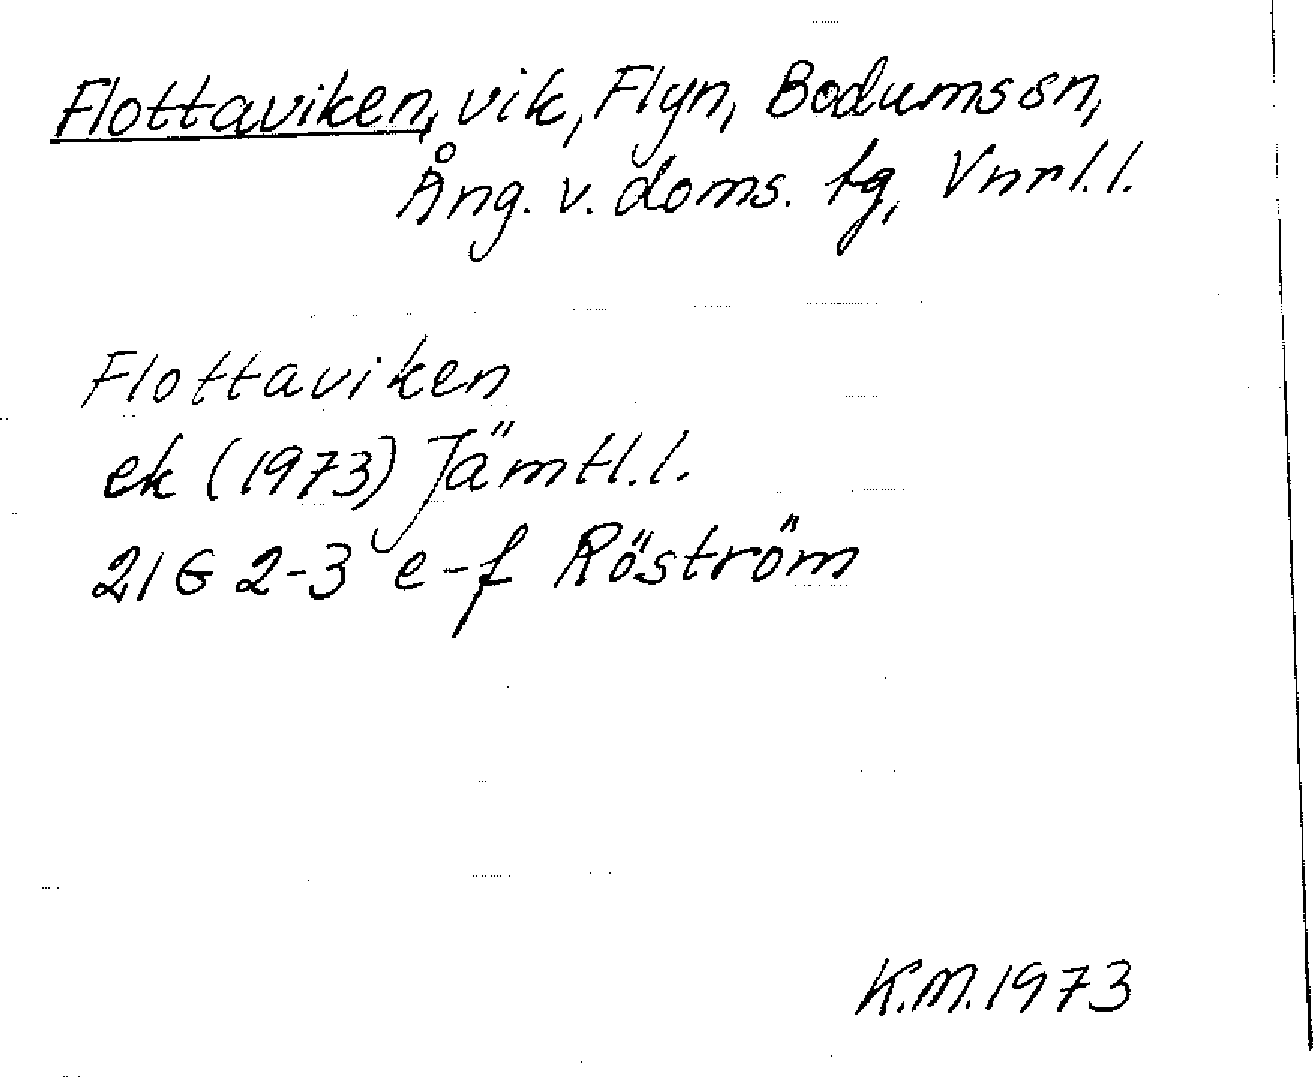 Flottaviken, vik, Flyn, Bodumssn,
Ång. v. doms. tg, Vnrl.l.
Flottaviken
ek (1973) Jämtl.l.
21G 2-3 e-f Röström
K.M.1973